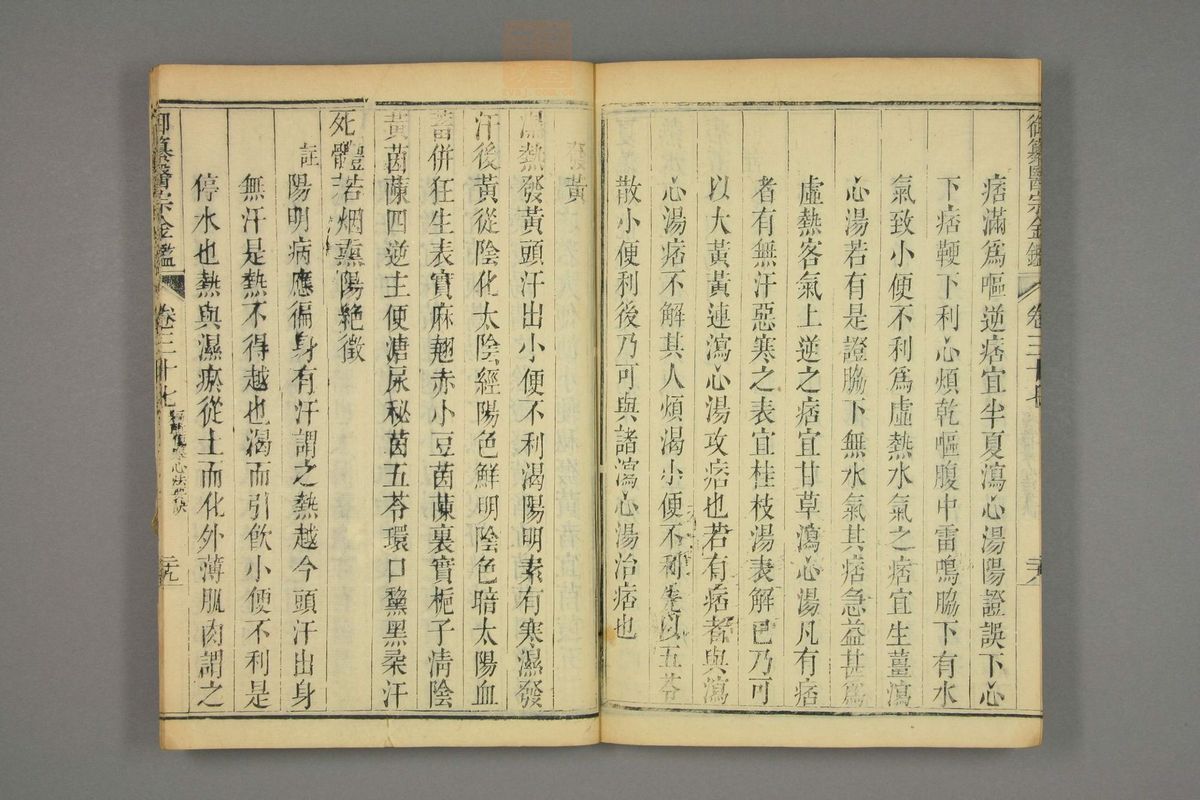 痞滿爲嘔逆痞宜半夏瀉心湯陽證誤下心
下痞鞕下利心煩乾嘔腹中雷鳴脇下有水
氣致小便不利爲虛熱水氣之痞宜生薑瀉
心湯若有是證脇下無水氣其痞急益甚爲
虛熱客氣上逆之痞宜甘草瀉心湯凡有痞
者有無汗惡寒之表宜桂枝湯表解已乃可
以大黃黃連瀉心湯攻痞也若有痞者與瀉
心湯痞不解其人煩渴小便不利先以五苓
散小便利後乃可與諸瀉心湯治痞也
御纂醫宗金鑑
卷三十七
發黃
濕熱發黃頭汗出小便不利渴陽明素有寒濕發
汗後黃從陰化太陰經陽色鮮明陰色暗太陽血
蓄併狂生表實麻翹赤小豆茵蔯裏實梔子清陰
黃茵蔯四逆主便溏尿秘茵五苓環口黧黑柔汗
死體若烟熏陽絕徵
註
陽明病應徧身有汗謂之熱越今頭汗出身
無汗是熱不得越也渴而引飲小便不利是
停水也熱與濕瘀從土而化外薄肌肉謂之
御纂醫宗金鑑
卷三十七
二十九